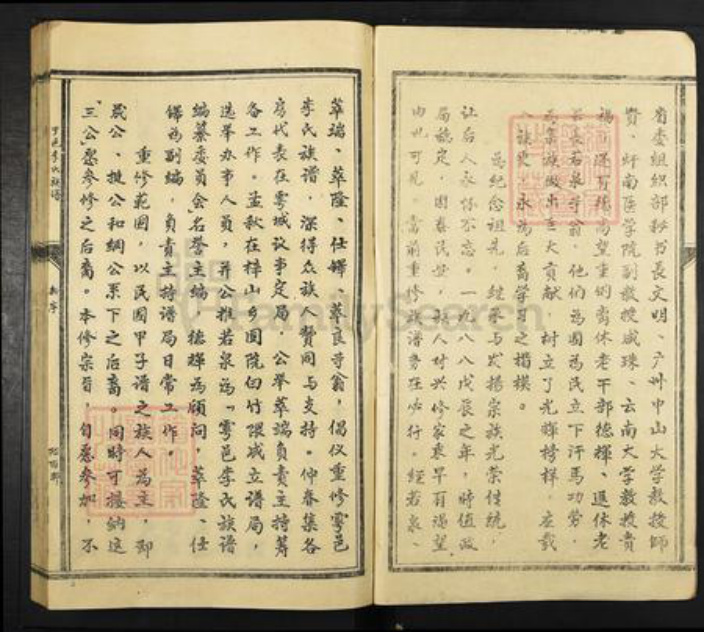 省委组织部秘书长文明、广州中山大学教授师
贤、赣南医学院副教授咸珠、云南大学教授贵
福，还有德高望重的离休老干部德樨、退休老
县长若泉等翁，他们为国为民立下汗马功劳，
为家族做出巨大贡献，树立了光辉榜样，应载
入族史，永为后裔学习之楷模。
为纪念祖先，继承与发扬宗族光荣传统，
让后人永怀不忘。一九八八戊辰之年，时值政
局稳定，国泰民安，族人对兴修家乘早有渴望，
由此可见，当前重修族谱势在必行。经若泉、
萃瑞、萃隆、仕铎、萃良等翁，倡仪重修雩邑
李氏族谱，深得众族人赞同与支持。仲春集各
房代表在雩城议事定局，公举萃瑞负责主持筹
备工作。孟秋在梓山乡园院白竹隈成立谱局，
选举办事人员，并公推若泉为「雩邑李氏族谱
编纂委员会」名誉主编，德樨为顾问，萃隆、仕
铎为副编，负责主持谱局日常工作。
重修范囲，以民国甲子谱之族人为主，即
晟公、㨗公和綱公系下之后裔。同时可接納这
三公愿参修之后裔。本修宗旨，自愿参加，不
李氏族谱
新序
FamilySearch